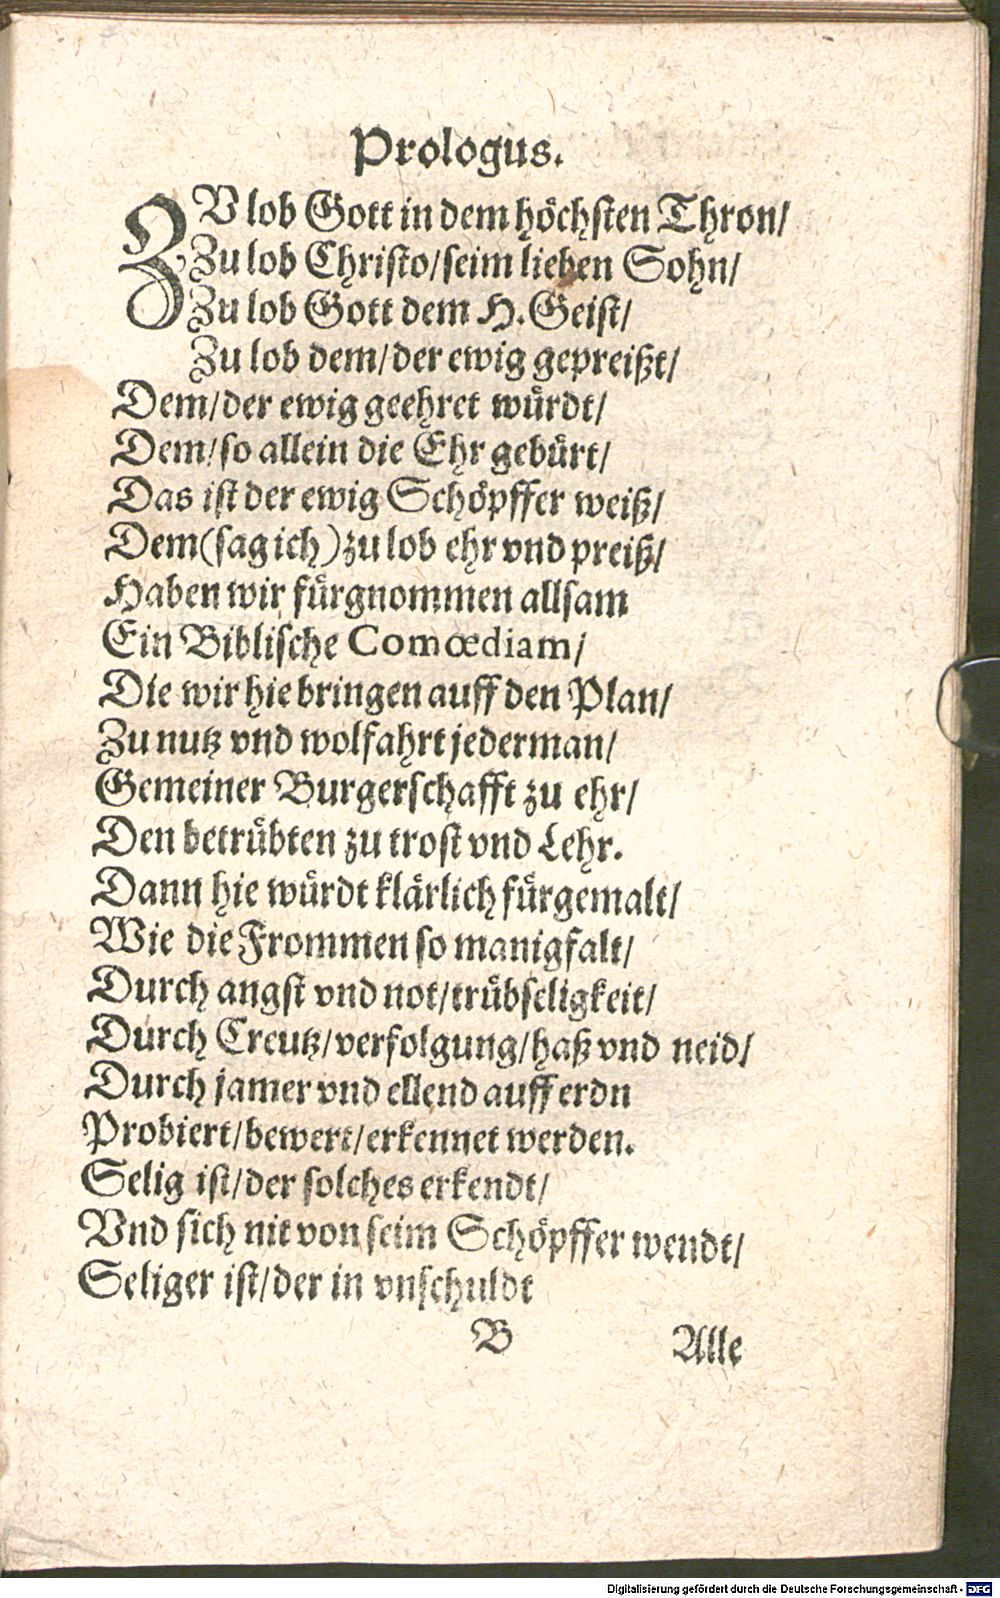 Prologus.
ZV lob Gott in dem höchsten Thron/
Zu lob Christo/seim lieben Sohn/
Zu lob Gott dem H. Geist/
Zu lob dem/der ewig gepreißt/
Dem/der ewig geehret würdt/
Dem/so allein die Ehr gebürt/
Das ist der ewig Schöpffer weiß/
Dem (sag ich) zu lob ehr vnd preiß/
Haben wir fürgnommen allsam
Ein Biblische Comœdiam/
Die wir hie bringen auff den Plan/
Zu nutz vnd wolfahrt jederman/
Gemeiner Burgerschafft zu ehr/
Den betrübten zu trost vnd Lehr.
Dann hie würdt klärlich fürgemalt/
Wie die Frommen so manigfalt/
Durch angst vnd not/trübseligkeit/
Durch Creutz/verfolgung/haß vnd neid/
Durch jamer vnd ellend auff erdn
Probiert/bewert/erkennet werden.
Selig ist/der solches erkendt/
Vnd sich nit von seim Schöpffer wendt/
Seliger ist/der in vnschuldt
B Alle
Digitalisierung gefördert durch die Deutsche Forschungsgemeinschaft - DFG